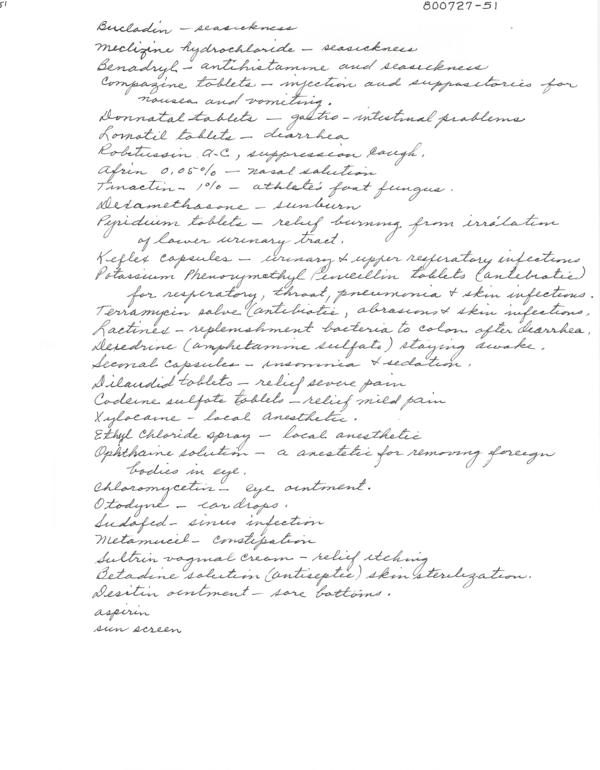 51
800727-51
Bucladin – seasickness
Meclizine hydrochloride – seasickness
Benadryl – antihistamine and seasickness
Compazine tablets – injection and suppositories for
nausea and vomiting.
Donnatal tablets – gastro-intestinal problems
Lomotil tablets – diarrhea
Robitussin A-C, suppression cough.
Afrin 0.05% – nasal solution
Tinactin – 1% – athlete's foot fungus.
Dexamethasone – sunburn
Pyridium tablets – relief burning from irritation
of lower urinary tract.
Keflex capsules – urinary & upper respiratory infections
Potassium Phenoxymethyl Penicillin tablets (antibiotic)
for respiratory, throat, pneumonia & skin infections.
Terramycin salve (antibiotic, abrasions & skin infections.
Lactinex – replenishment bacteria to colon after diarrhea.
Dexedrine (amphetamine sulfate) staying awake.
Seconal capsules – insomnia & sedation.
Dilaudid tablets – relief severe pain
Codeine sulfate tablets – relief mild pain
Xylocaine – local anesthetic.
Ethyl Chloride spray – local anesthetic
Ophthaine solution – a anestetic for removing foreign
bodies in eye.
Chloromycetin – eye ointment.
Otodyne – ear drops.
Sudafed – sinus infection
Metamucil – constipation
Sultrin vaginal cream – relief itching
Betadine solution (antiseptic) skin sterilization.
Desitin ointment – sore bottoms.
aspirin
sun screen